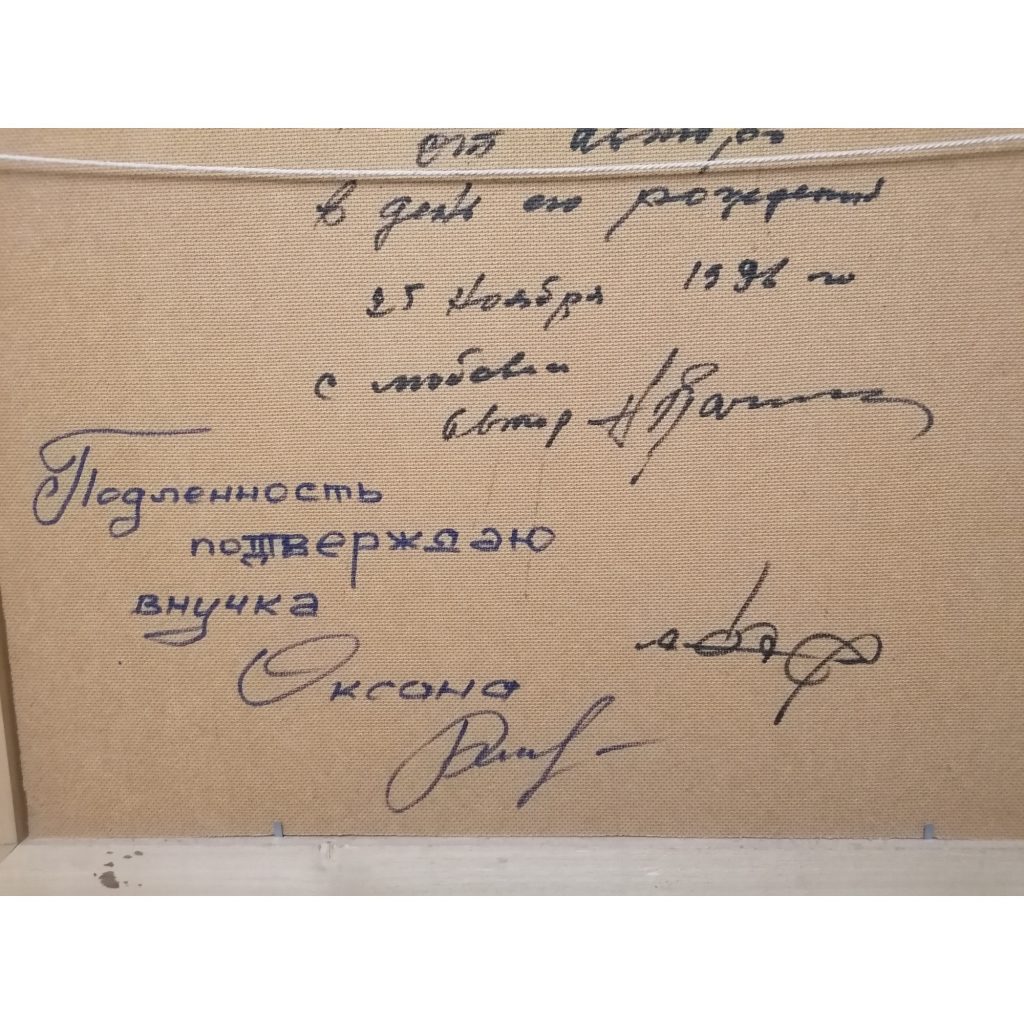 от автора
в день его рождения
25 Ноября 1996 го
с любовью
автор
Подленность
подтверждаю
внучка
Оксана